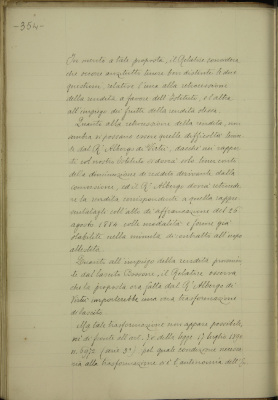 - 384 -
In merito a tale proposta, il Relatore considera
che occorre anzitutto tenere ben distinte le due
questioni, relative l'una alla retrocessione
della rendita a favore dell'Istituto, e l'altra
all'impiego dei frutti della rendita stessa.
Quanto alla retrocessione della rendita, non
sembra vi possano essere quelle difficoltà
dal R. Albergo di Virtù, perché nei rapporti
col nostro Istituto si dovrà solo tener conto
della diminuzione di reddito derivante dalla
conversione, ed il R. Albergo dovrà retrocedere
la rendita corrispondente a quella
coll'atto di affrancazione del 26
agosto 1884 colle modalità e forme già
stabilite nella minuta di contratto all'uopo
allestita.
Quanto all'impiego della rendita
dal lascito il Relatore osserva
che la proposta ora fatta dal R. Albergo di
Virtù importerebbe una vera trasformazione
di lascito.
Ma tale trasformazione non appare possibile
di fronte all'art. 70 della legge 17 luglio 1890
n. 6972 (serie 3ª) pel quale condizione
alla trasformazione è